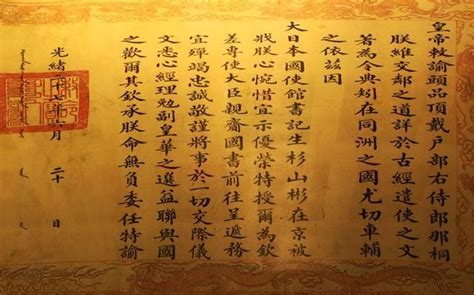 皇帝敕諭頭品頂戴戶部右侍郎那桐
朕維交鄰之道詳於古經遣使之文
著為令典矧在同洲之國尤切車輔
之依茲因
大日本國使館書記生杉山彬在京被
戕朕心惋惜宜示優榮特授爾為欽
差專使大臣親齎國書前往呈遞務
宜殫竭忠誠敬謹將事於一切交際儀
文悉心經理勉副皇華之選益聯與國
之歡爾其欽承朕命無負委任特諭
光緒年月二十日